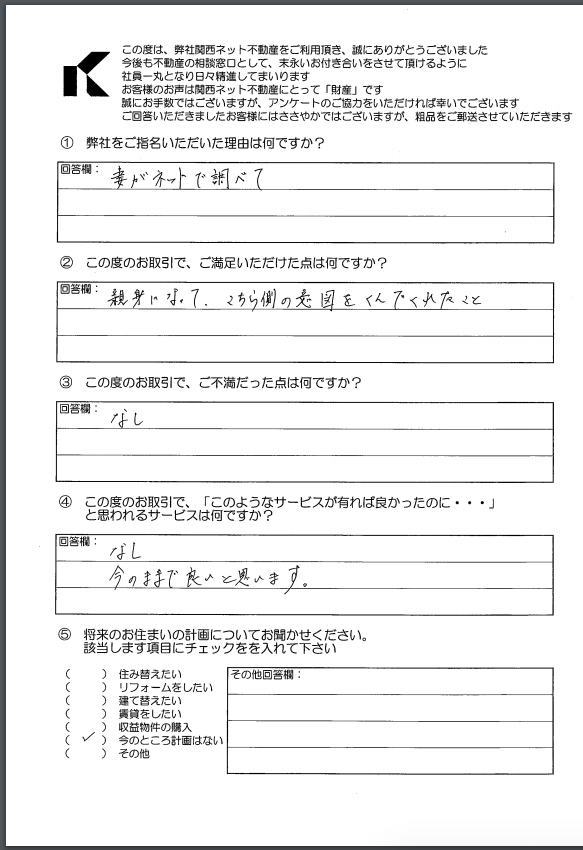 この度は、弊社関西ネット不動産をご利用頂き、誠にありがとうございました
今後も不動産の相談窓口として、末永いお付き合いをさせて頂けるように
社員一丸となり日々精進してまいります
お客様のお声は関西ネット不動産にとって「財産」です
誠にお手数ではございますが、アンケートのご協力をいただければ幸いでございます
ご回答いただきましたお客様にはささやかではございますが、粗品をご郵送させていただきます
① 弊社をご指名いただいた理由は何ですか？
回答欄： 妻がネットで調べて
② この度のお取引で、ご満足いただけた点は何ですか？
回答欄： 親身になって、こちら側の意図をくんでくれたこと
③ この度のお取引で、ご不満だった点は何ですか？
回答欄： なし
④ この度のお取引で、「このようなサービスが有れば良かったのに・・・」
と思われるサービスは何ですか？
回答欄： なし
今のままで良いと思います。
⑤ 将来のお住まいの計画についてお聞かせください。
該当します項目にチェックをを入れて下さい
（　　） 住み替えたい
（　　） リフォームをしたい
（　　） 建て替えたい
（　　） 賃貸をしたい
（　　） 収益物件の購入
（ ✓ ） 今のところ計画はない
（　　） その他
その他回答欄：